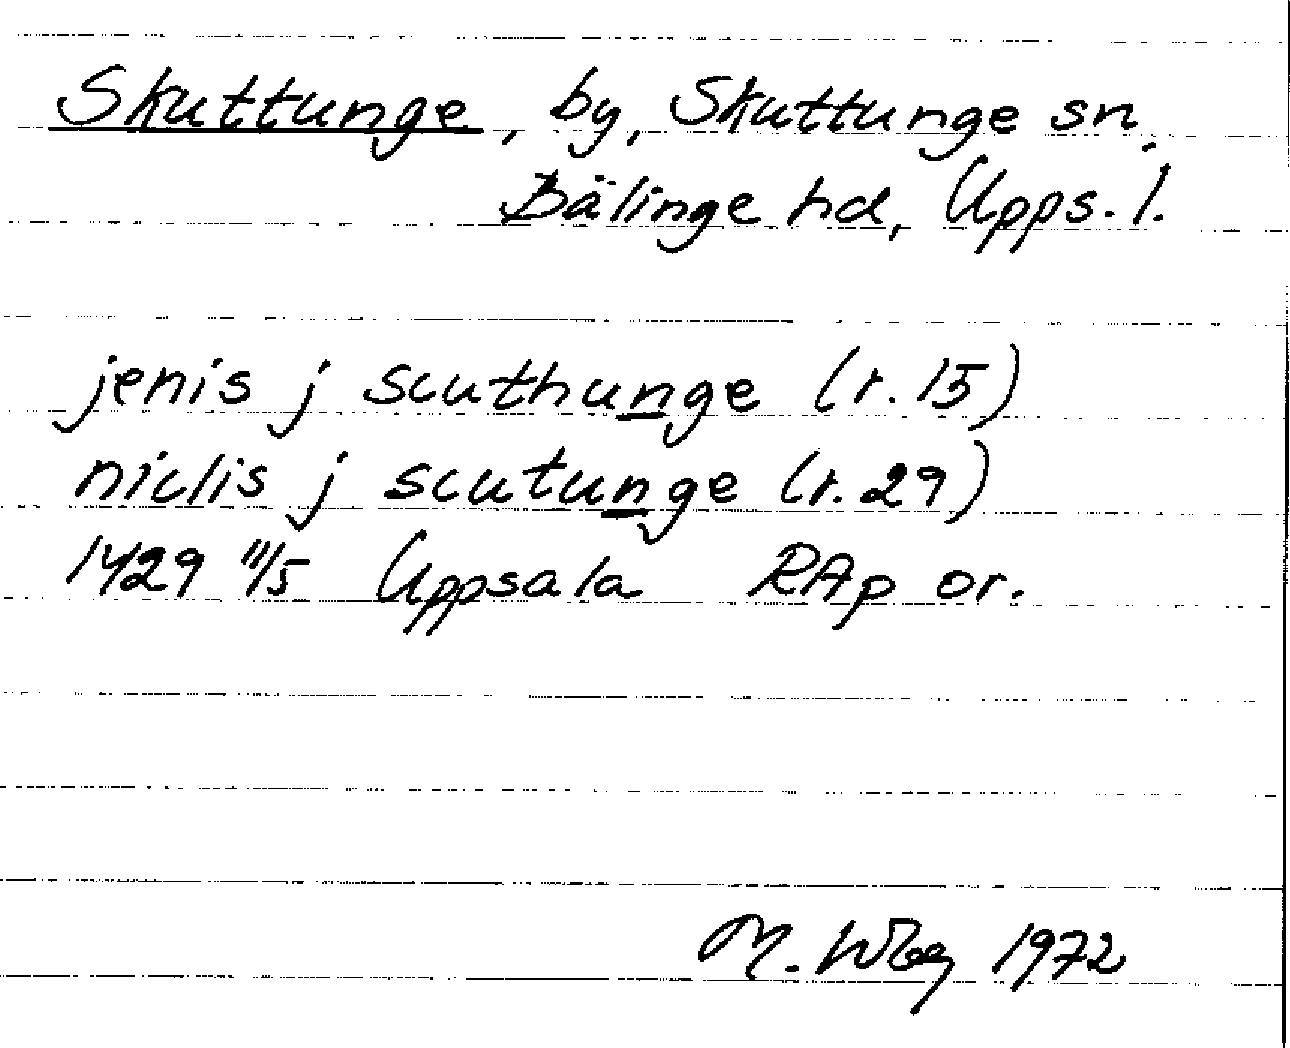 Skuttunge, by, Skuttunge sn,
Bälinge hd, Upps. l.
jenis j scuthunge (r. 15)
niclis j scutunge (r. 29)
1429 11/5 Uppsala RAp or.
M. 1972